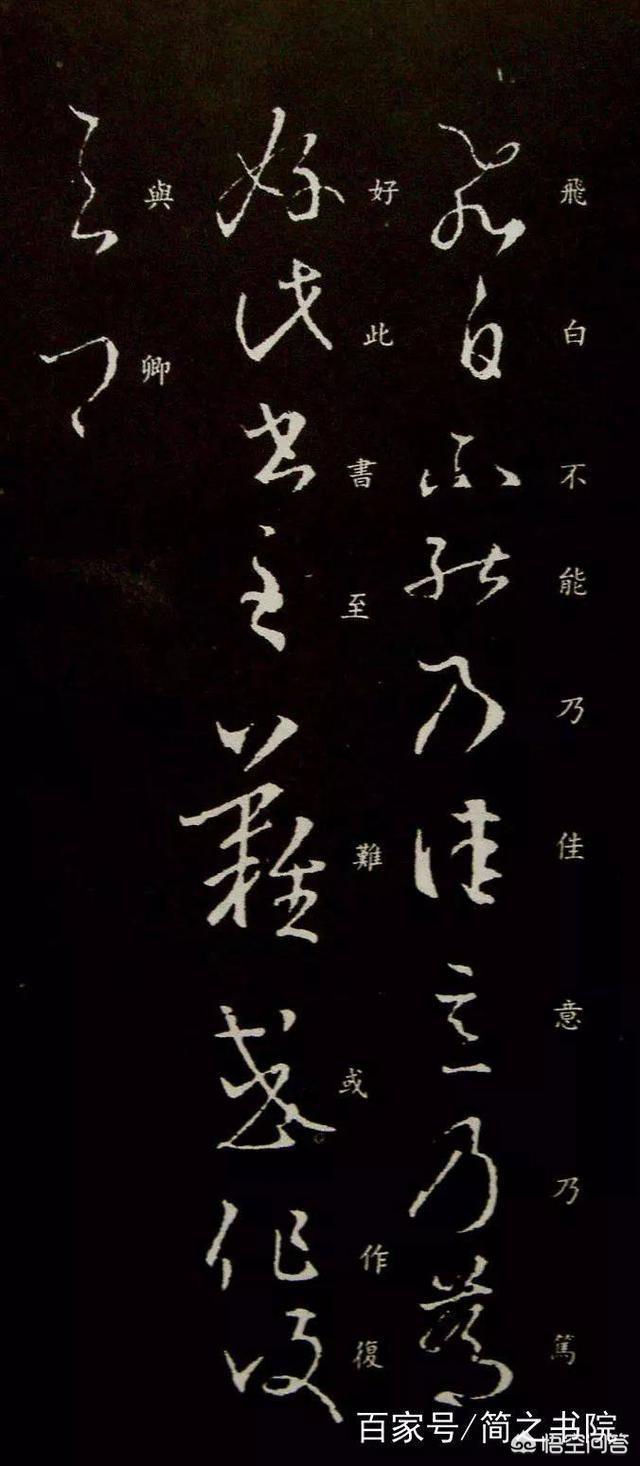 飛白不能乃佳意乃篤
好此書至難或作復
與卿
百家号/简之书院
悟空问答